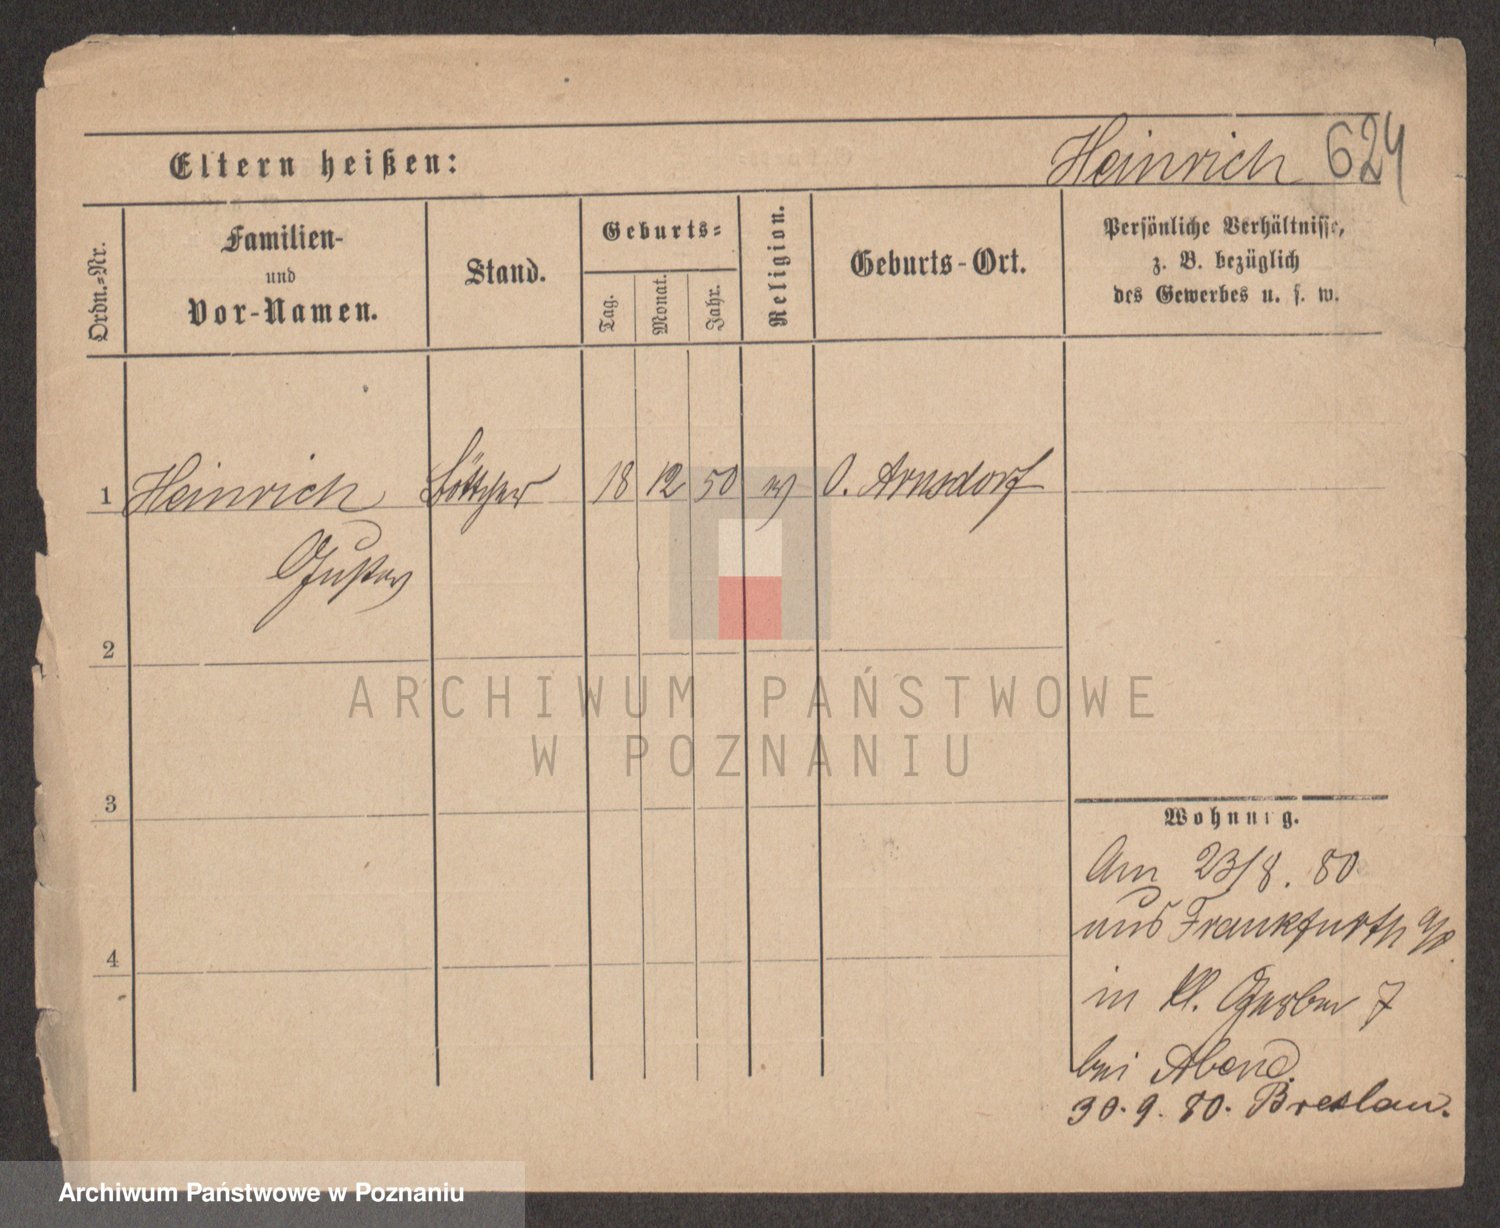 Eltern heißen:
Heinrich 624
Ordn.-Nr.
Familien-
und
Vor-Namen.
Stand.
Geburts-
Tag.
Monat.
Jahr.
Religion.
Geburts-Ort.
Persönliche Verhältnisse,
z. B. bezüglich
des Gewerbes u. s. w.
1 Heinrich Böttcher 18 12 50 ev O. Arnsdorf
Gustav
2
ARCHIWUM PAŃSTWOWE
W POZNANIU
3
Wohnung.
Am 23/8. 80
aus Frankfurth a/O.
4
in Kl. Gerber 7
bei Abend.
30. 9. 80. Breslau.
Archiwum Państwowe w Poznaniu